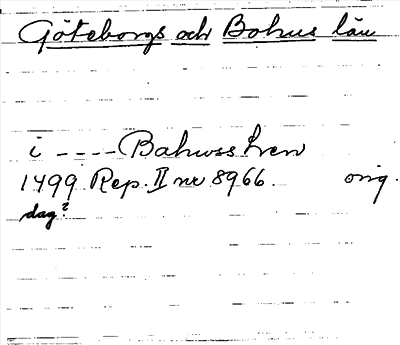 Göteborgs och Bohus län
i ---- Bahwss hren
1499 Rep. II nr 8966. orig.
dag?